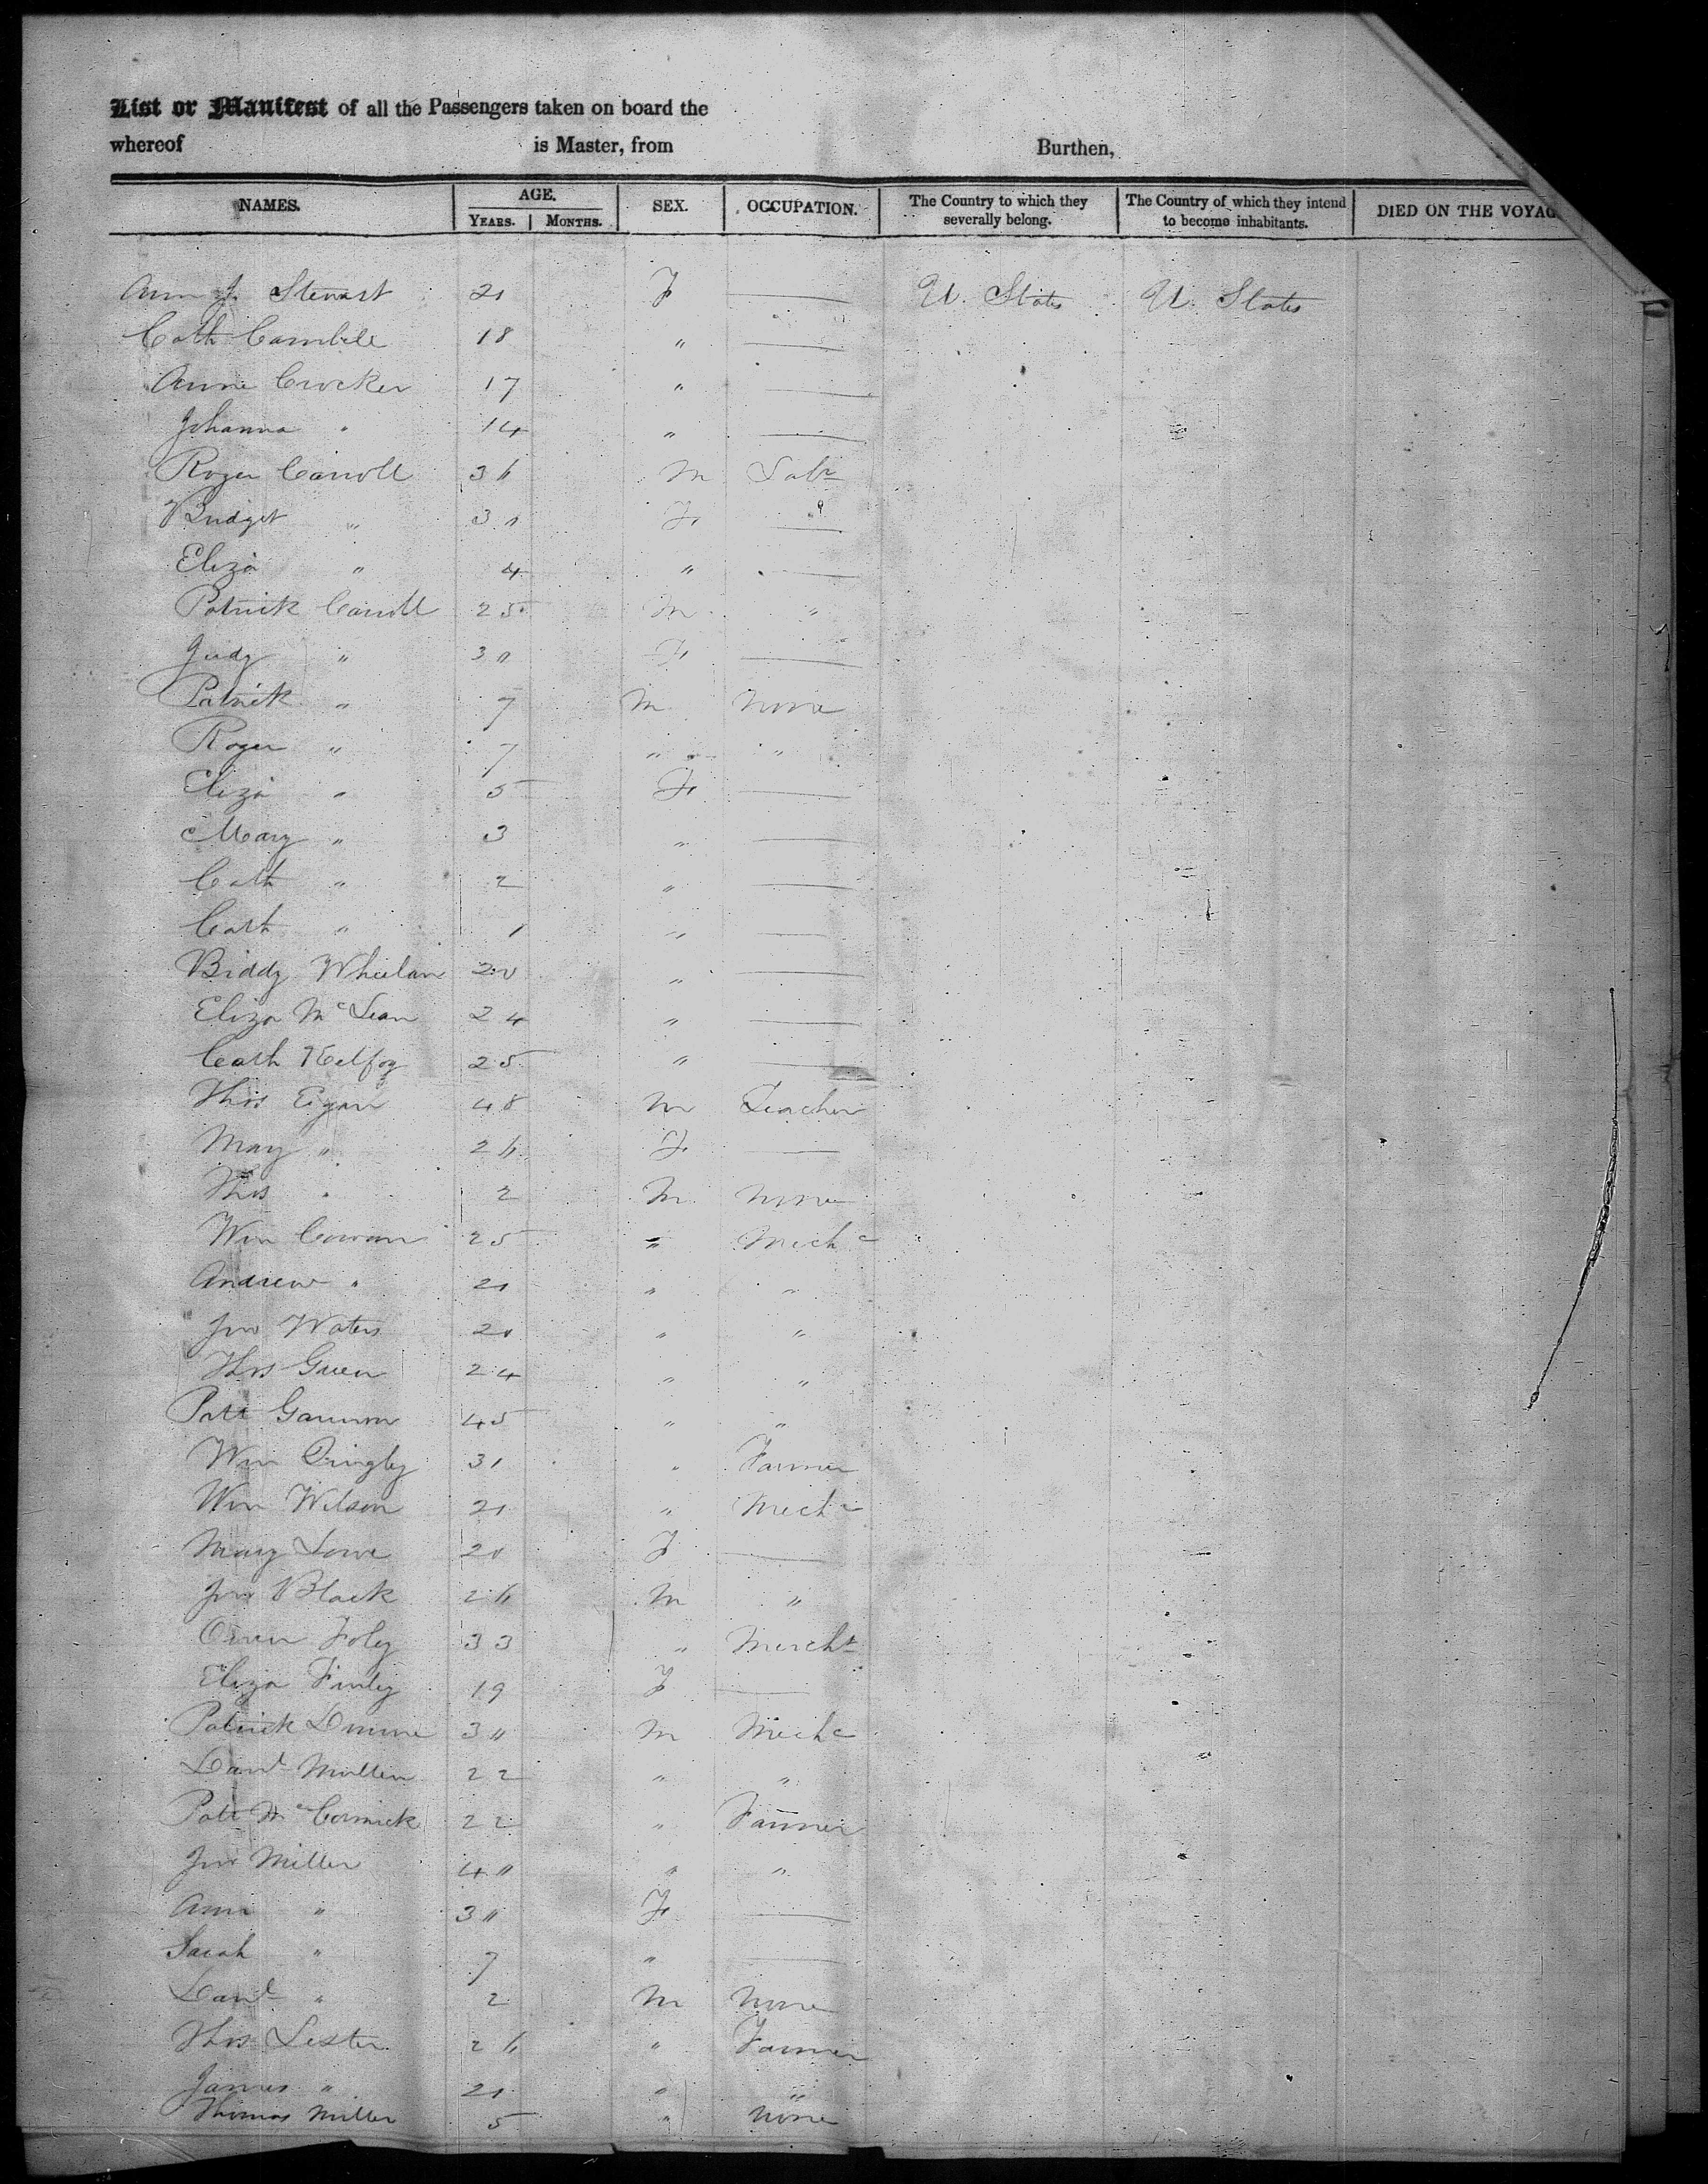 List or Manifest of all the Passengers taken on board the
whereof is Master, from Burthen,
NAMES. AGE. SEX. OCCUPATION. The Country to which they severally belong. The Country of which they intend to become inhabitants. DIED ON THE VOYAG
YEARS. MONTHS.
Ann J. Stewart 21 F — U. States U. States
Cath 18 " —
Anne Crocker 17 " —
Johanna " 14 " —
Roger Carroll 36 M Labr
Bridget " 30 F —
Eliza " 4 " —
Patrick Carroll 25 M "
Judy " 30 F —
Patrick " 7 M None
Roger " 7 " "
Eliza " 5 F —
Mary " 3 " —
Cath " 2 " —
Cath " 1 " —
Biddy Wheelan 20 " —
Eliza McLean 24 " —
Cath 25 " —
Thos Egan 48 M Teacher
Mary " 26 F —
Thos " 2 M None
Wm Cowan 25 " Mechc
Andrew " 21 " "
Jno Waters 20 " "
Thos Green 24 " "
Patt Gannon 45 " "
Wm 31 " Farmer
Wm Wilson 21 " Mechc
Mary Lowe 20 F —
Jno Black 26 M "
Owen Foley 33 " Mercht
Eliza Finley 19 F —
Patrick Dunne 30 M Mechc
Danl Mullen 22 " "
Patt McCormick 22 " Farmer
Jno Miller 40 " "
Ann " 30 F —
Sarah " 7 " —
Danl " 2 M None
Thos Lester 26 " Farmer
James " 21 " "
Thomas Miller 5 " None